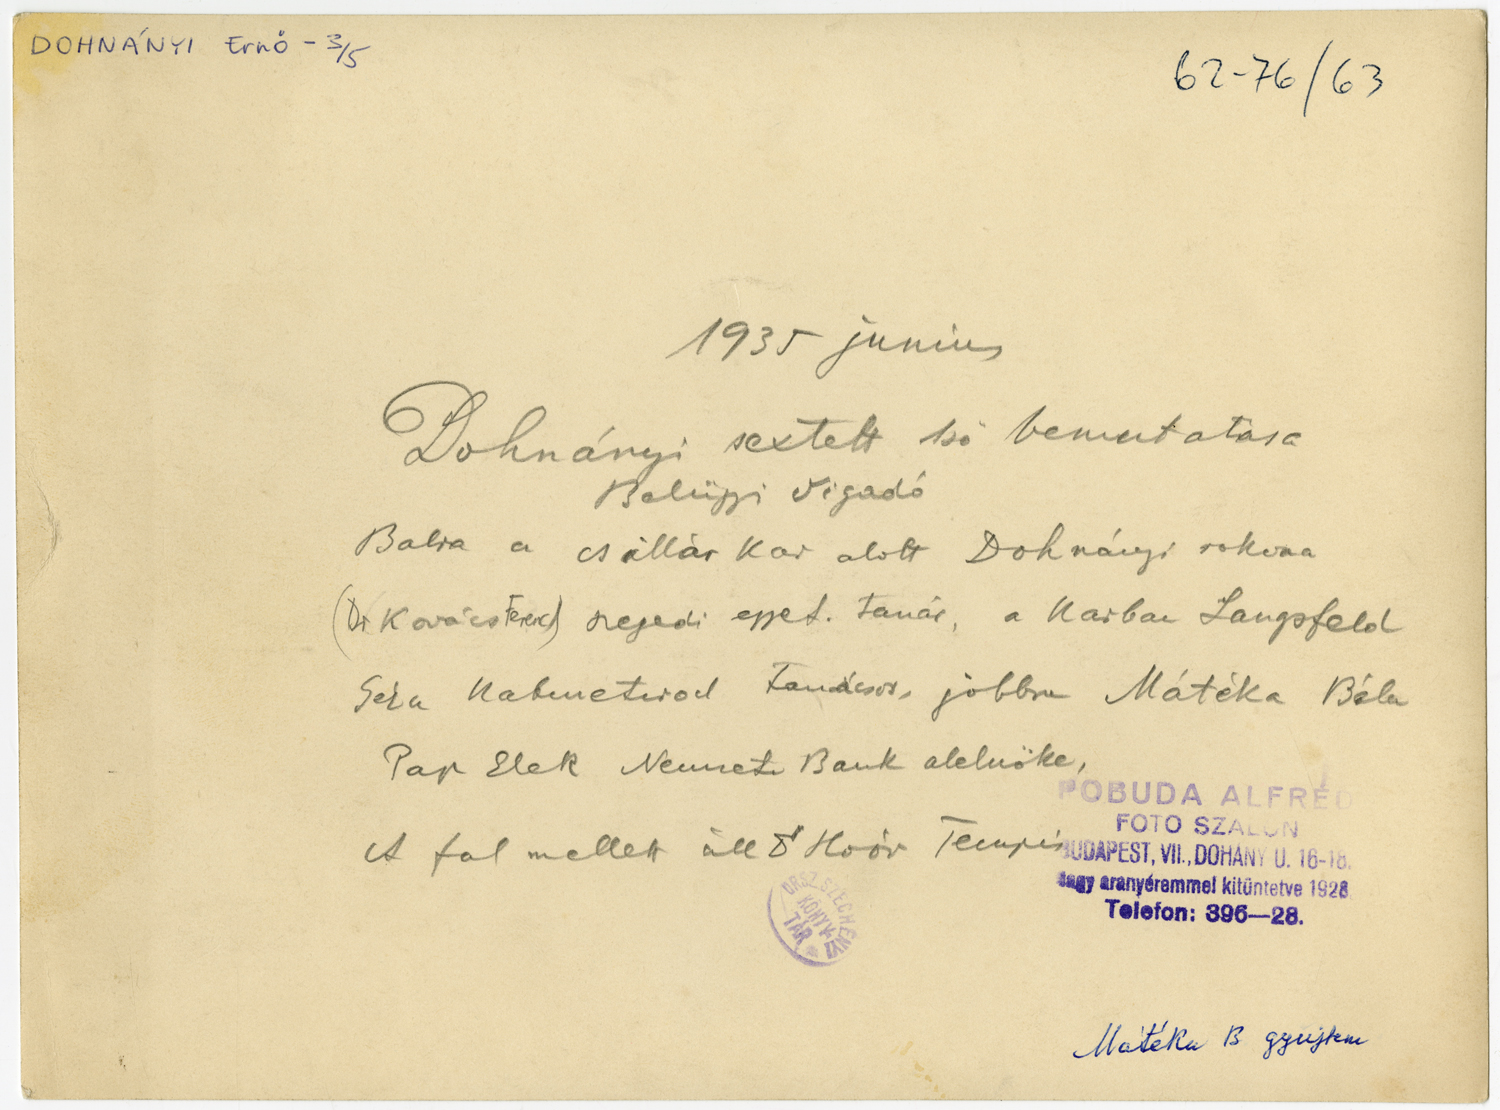 DOHNÁNYI Ernő - 3/5
62-76/63
1935 junius
Dohnányi sextett bemutatasa
Vigadó
Balra a csillár Kar alatt Dohnányi rokona
(Dr Kovács Ferenc) szegedi egyet. tanár, a Karban Langsfeld
Géza tanácsos, jobbra Mátéka Béla
Pap Elek Nemzeti Bank alelnöke,
A fal mellett áll Hoór Tempis
POBUDA ALFRÉD
FOTO SZALON
BUDAPEST, VII., DOHÁNY U. 16-18.
Nagy aranyéremmel kitüntetve 1928.
Telefon: 396—28.
ORSZ. SZÉCHÉNYI KÖNYVTÁR
Mátéka B gyűjtem